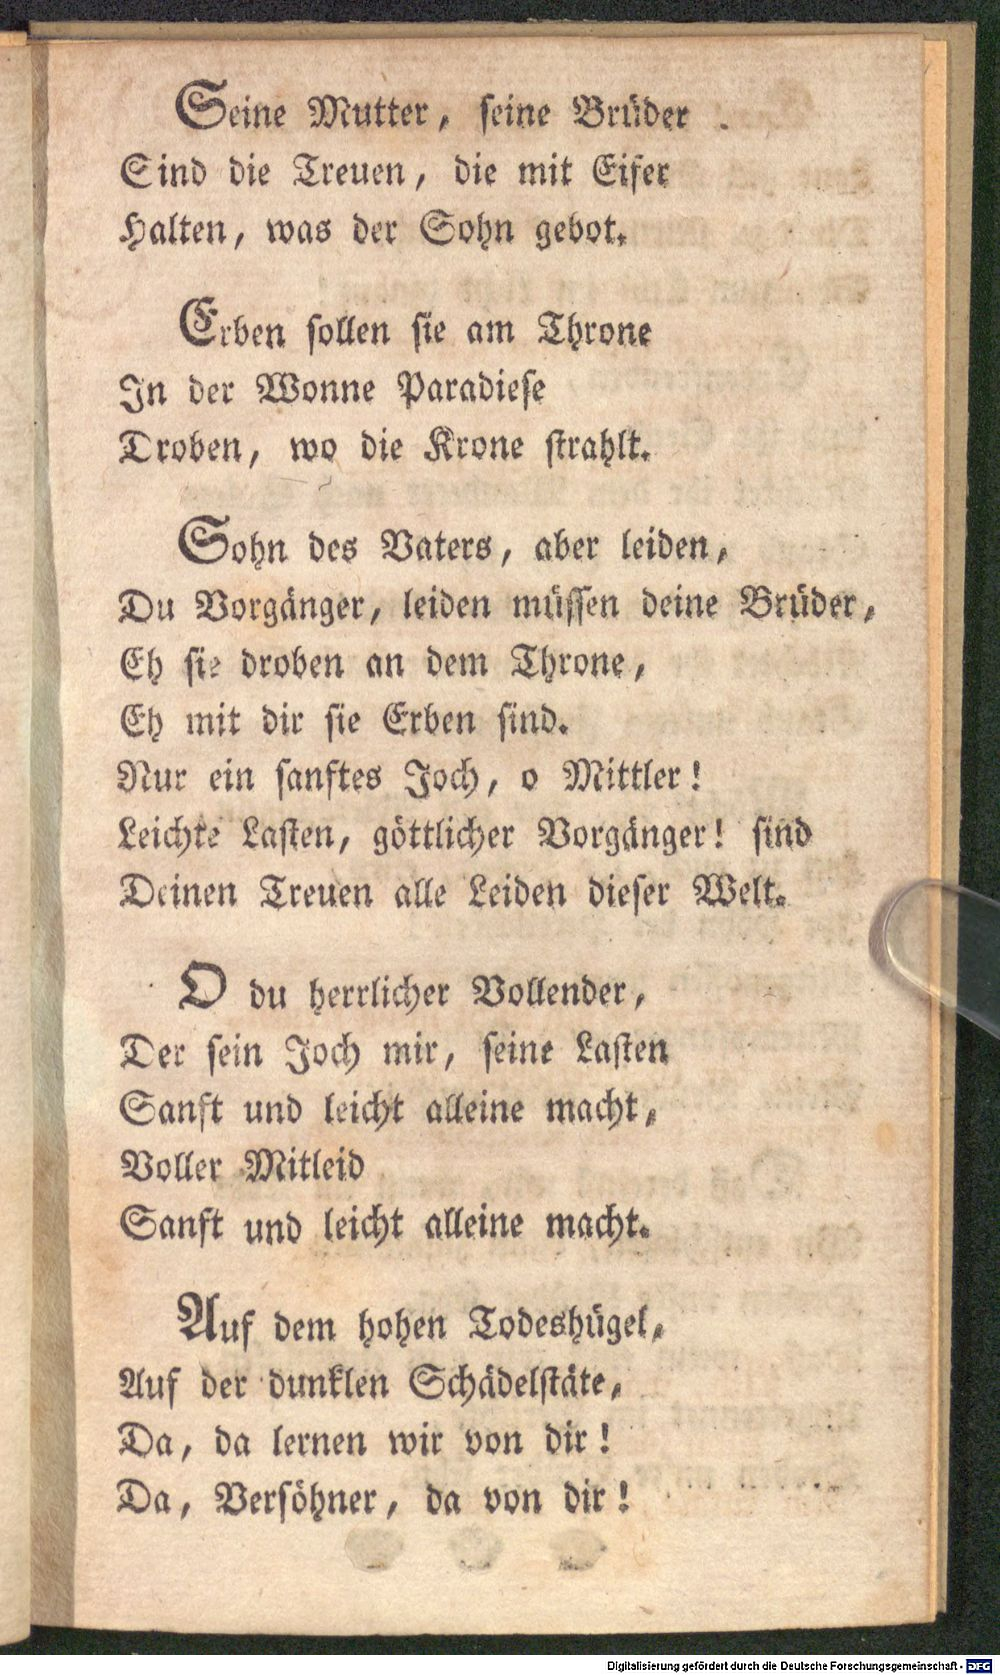 Seine Mutter, seine Brüder
Sind die Treuen, die mit Eifer
Halten, was der Sohn gebot.
Erben sollen sie am Throne
In der Wonne Paradiese
Droben, wo die Krone strahlt.
Sohn des Vaters, aber leiden,
Du Vorgänger, leiden müssen deine Brüder,
Eh sie droben an dem Throne,
Eh mit dir sie Erben sind.
Nur ein sanftes Joch, o Mittler!
Leichte Lasten, göttlicher Vorgänger! sind
Deinen Treuen alle Leiden dieser Welt.
O du herrlicher Vollender,
Der sein Joch mir, seine Lasten
Sanft und leicht alleine macht,
Voller Mitleid
Sanft und leicht alleine macht.
Auf dem hohen Todeshügel,
Auf der dunklen Schädelstäte,
Da, da lernen wir von dir!
Da, Versöhner, da von dir!
Digitalisierung gefördert durch die Deutsche Forschungsgemeinschaft - DFG